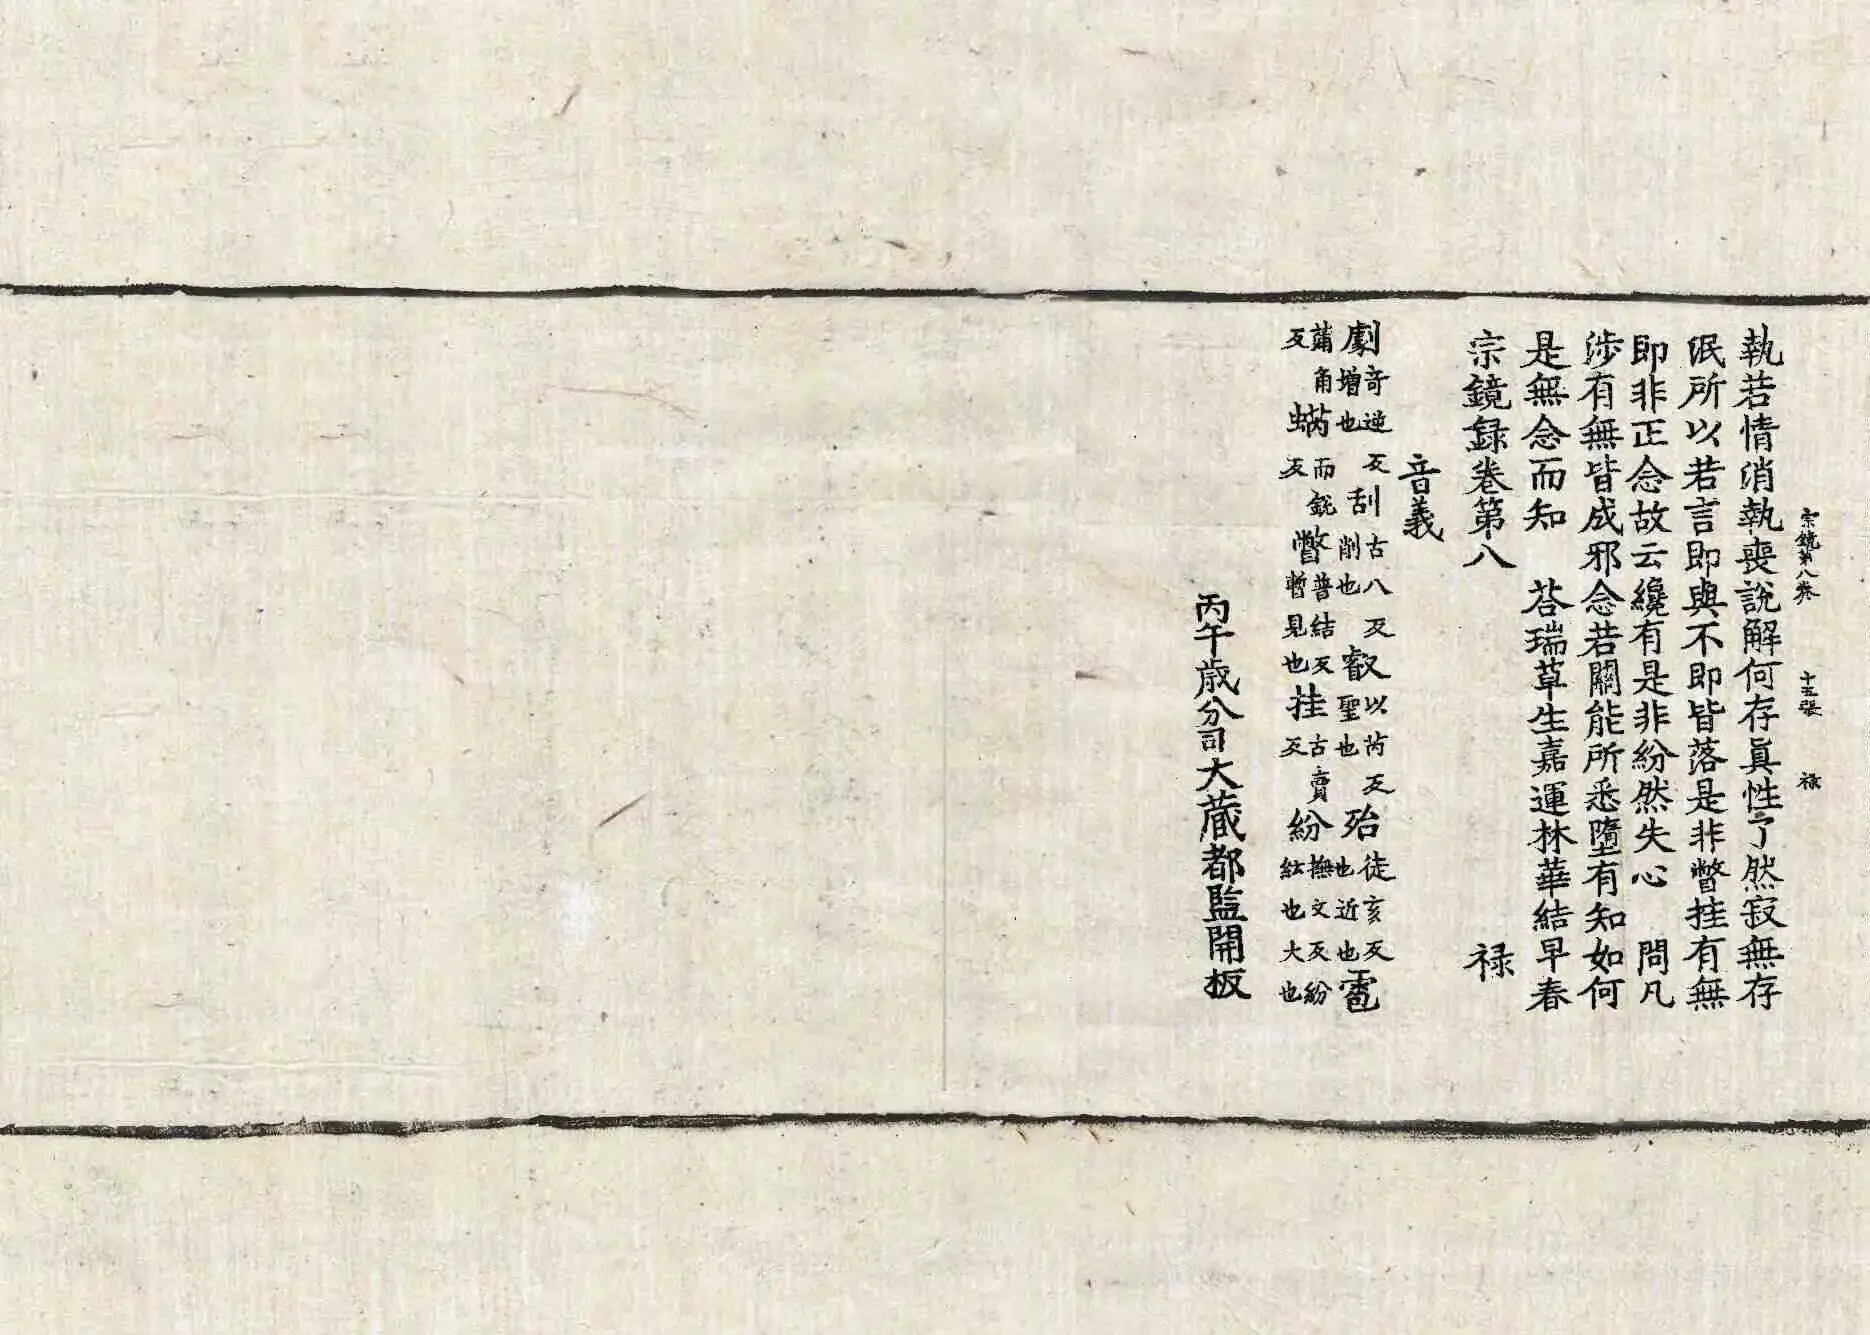 宗鏡第八卷 十五張 祿
執若情消執喪說解何存眞性了然寂無存
泯所以若言即與不即皆落是非瞥挂有無
即非正念故云纔有是非紛然失心 問凡
涉有無皆成邪念若關能所悉墮有知如何
是無念而知 荅瑞草生嘉運林華結早春
宗鏡録卷第八 祿
音義
劇奇逆反增也刮古八反削也叡以芮反聖也殆徒亥反近也雹
蒲角反蜹而銳反瞥普結反暫見也挂古賣反紛撫文反紛紜也大也
丙午歲分司大藏都監開板